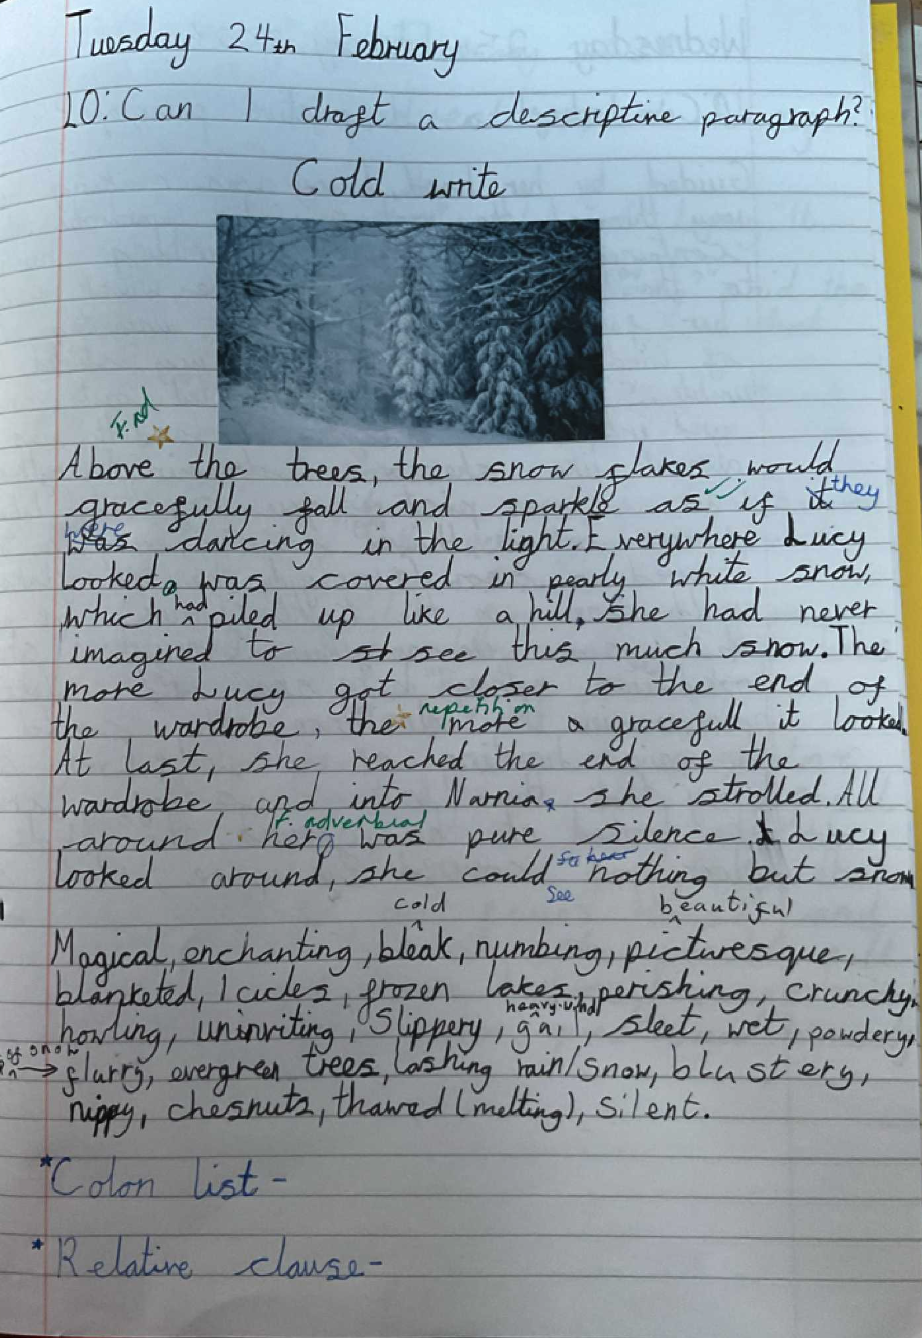 Tuesday 24th February
LO: Can I draft a descriptive paragraph?
Cold write
F.nd
Above the trees, the snow flakes would
gracefully fall and sparkle as if it they
was were dancing in the light. Everywhere Lucy
looked, was covered in pearly white snow,
which had piled up like a hill, she had never
imagined to st see this much snow. The
more Lucy got closer to the end of
repetition
the wardrobe, the more a gracefull it looked.
At last, she reached the end of the
wardrobe and into Narnia, she strolled. All
f. adverbial
around her, was pure silence. I Lucy
looked around, she could see nothing but snow
cold beautiful
Magical, enchanting, bleak, numbing, picturesque,
blanketed, Icicles, frozen lakes, perishing, crunchy,
heavy wind
howling, uninviting, Slippery, gail, sleet, wet, powdery,
of snow
flurry, evergreen trees, lashing rain/snow, blustery,
nippy, chesnuts, thawed (melting), silent.
*Colon list -
*Relative clause -